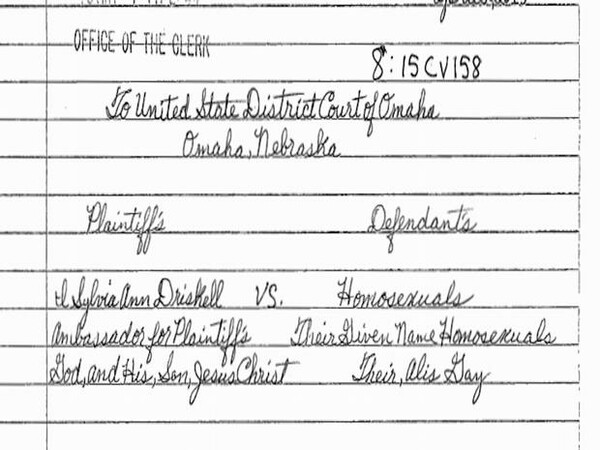 OFFICE OF THE CLERK
8:15CV158
To United State District Court of Omaha
Omaha, Nebraska
Plaintiff's Defendant's
I Sylvia Ann Driskell VS. Homosexuals
Ambassador for Plaintiff's Their Given Name Homosexuals
God, and His, Son, Jesus Christ Their, Alis Gay